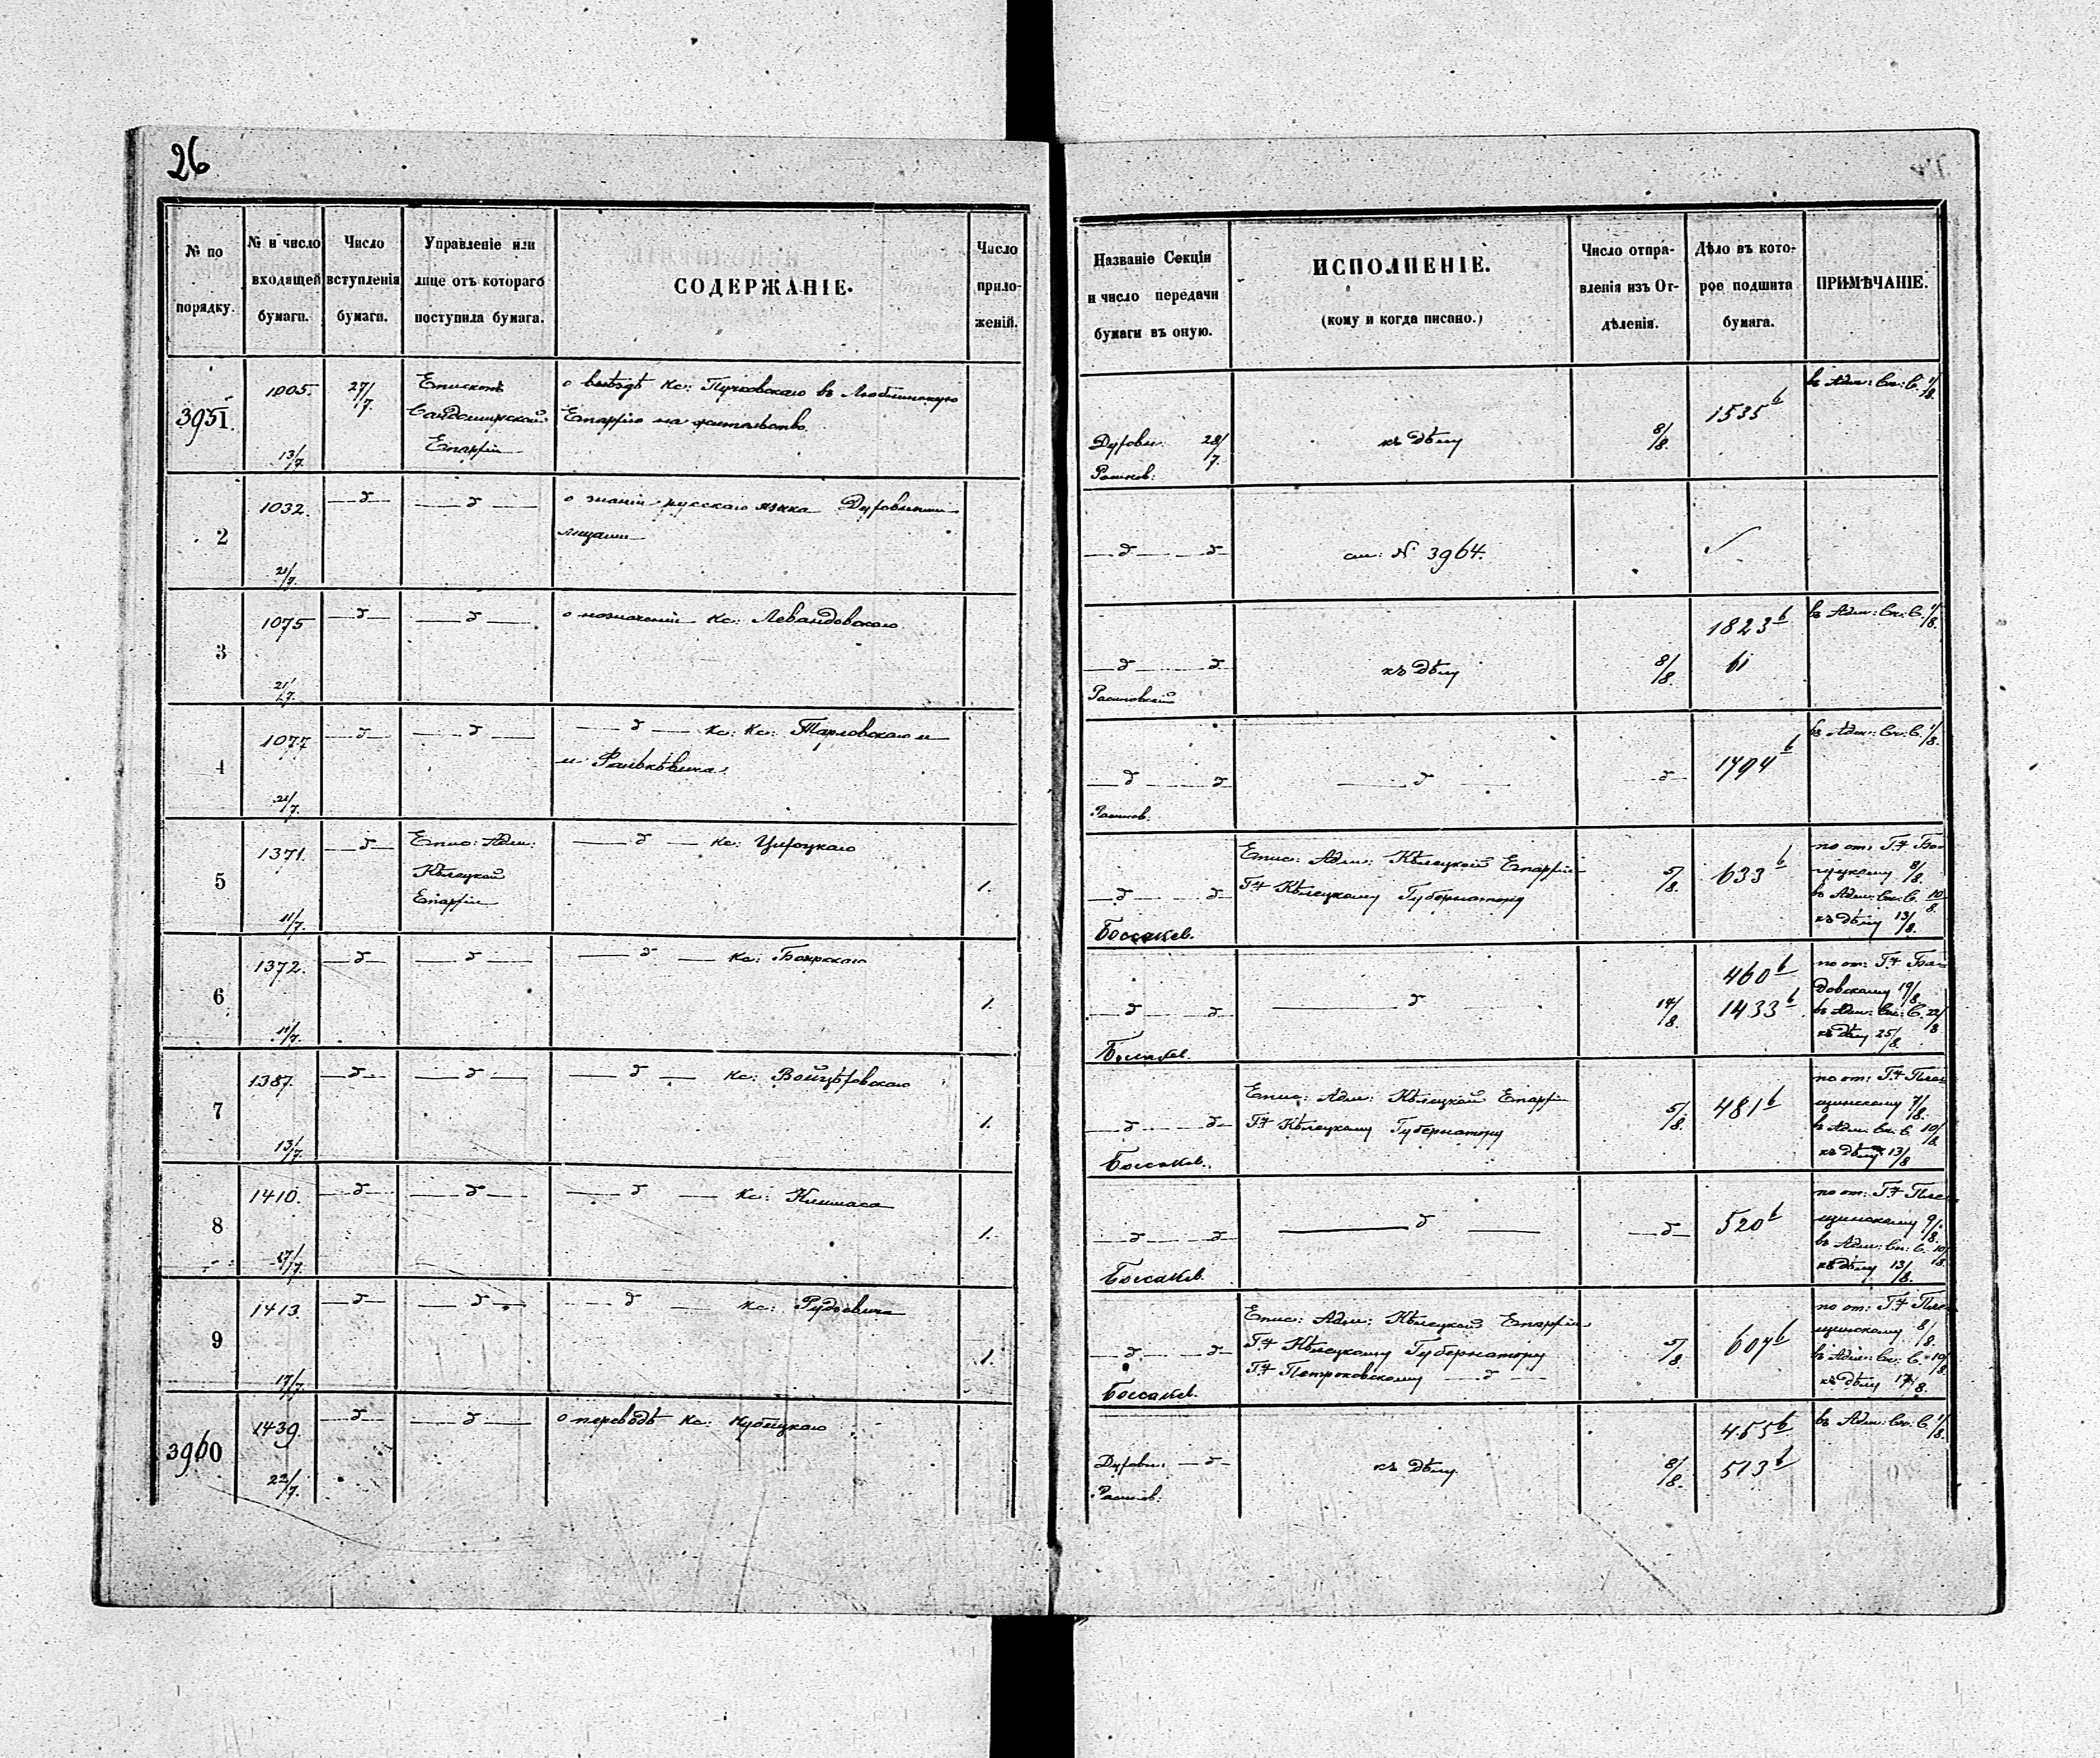 26
№ по порядку.
№ и число входящей бумаги.
Число вступленія бумаги.
Управленіе или лице отъ котораго поступила бумага.
СОДЕРЖАНІЕ.
Число приложеній.
Названіе Секціи и число передачи бумаги въ оную.
ИСПОЛНЕНІЕ.
(кому и когда писано.)
Число отправленія изъ Отдѣленія.
Дѣло въ которое подшита бумага.
ПРИМѢЧАНІЕ.
3951.
1005.
13/7.
27/7.
Епископъ
Сандомирской
Епархіи
о выѣздѣ Кс: Пучковскаго въ Люблинскую
Епархію на жительство.
28/7.
къ дѣлу
8/8.
1535 б
въ Адм: Сп: С. 1/8.
2
1032.
21/7.
— д —
— д —
о знаніи русскаго языка Духовными
лицами
— д — д —
см: № 3964.
3
1075
21/7.
— д —
— д —
о назначеніи Кс: Левандовскаго
— д — д —
къ дѣлу
8/8.
1823 б
61
въ Адм: Сп: С. 1/8.
4
1077
21/7.
— д —
— д —
— д — Кс: Кс: Тарловскаго и
— д — д —
— д —
— д —
1794 б
въ Адм: Сп: С. 1/8.
5
1371.
11/7.
— д —
Епис: Адм:
Кѣлецкой
Епархіи
— д — Кс: Цироцкаго
1.
— д — д —
Епис: Адм: Кѣлецкой Епархіи
ГЧ Кѣлецкому Губернатору
5/8.
633 б
въ Адм: Сп: С. 10/8.
къ дѣлу 13/8.
6
1372.
11/7.
— д —
— д —
— д — Кс: Боярскаго
1.
— д — д —
— д —
14/8.
460 б
1433 б
довскому 19/8.
въ Адм: Сп: С. 22/8
къ дѣлу 25/8.
7
1387.
13/7.
— д —
— д —
— д — Кс: Войцѣховскаго
1.
— д — д —
Епис: Адм: Кѣлецкой Епархіи
ГЧ Кѣлецкому Губернатору
5/8.
481 б
щинскому 7/8.
въ Адм: Сп: С 10/8.
къ дѣлу 13/8
8
1410.
17/7.
— д —
— д —
— д — Кс: Климаса
1.
— д — д —
— д —
— д —
520 б
щинскому 9/8.
въ Адм: Сп: С. 10/8.
къ дѣлу 13/8.
9
1413.
17/7.
— д —
— д —
— д — Кс: Рудзевича
1.
— д — д —
Епис: Адм: Кѣлецкой Епархіи
ГЧ Кѣлецкому Губернатору
ГЧ Петроковскому — д —
5/8.
607 б
щинскому 8/8.
въ Адм: Сп: С. 10/8.
къ дѣлу 17/8.
3960
1439.
22/7.
— д —
— д —
о переводѣ Кс: Кубицкаго
— д —
къ дѣлу
8/8.
455 б
513 б
въ Адм: Сп: С 1/8.